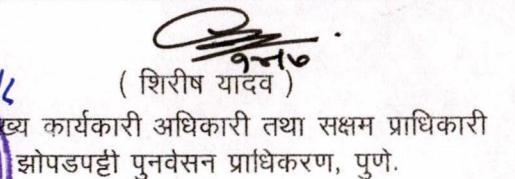 ( शिरीष यादव )
ख्य कार्यकारी अधिकारी तथा सक्षम प्राधिकारी
झोपडपट्टी पुनर्वसन प्राधिकरण, पुणे.